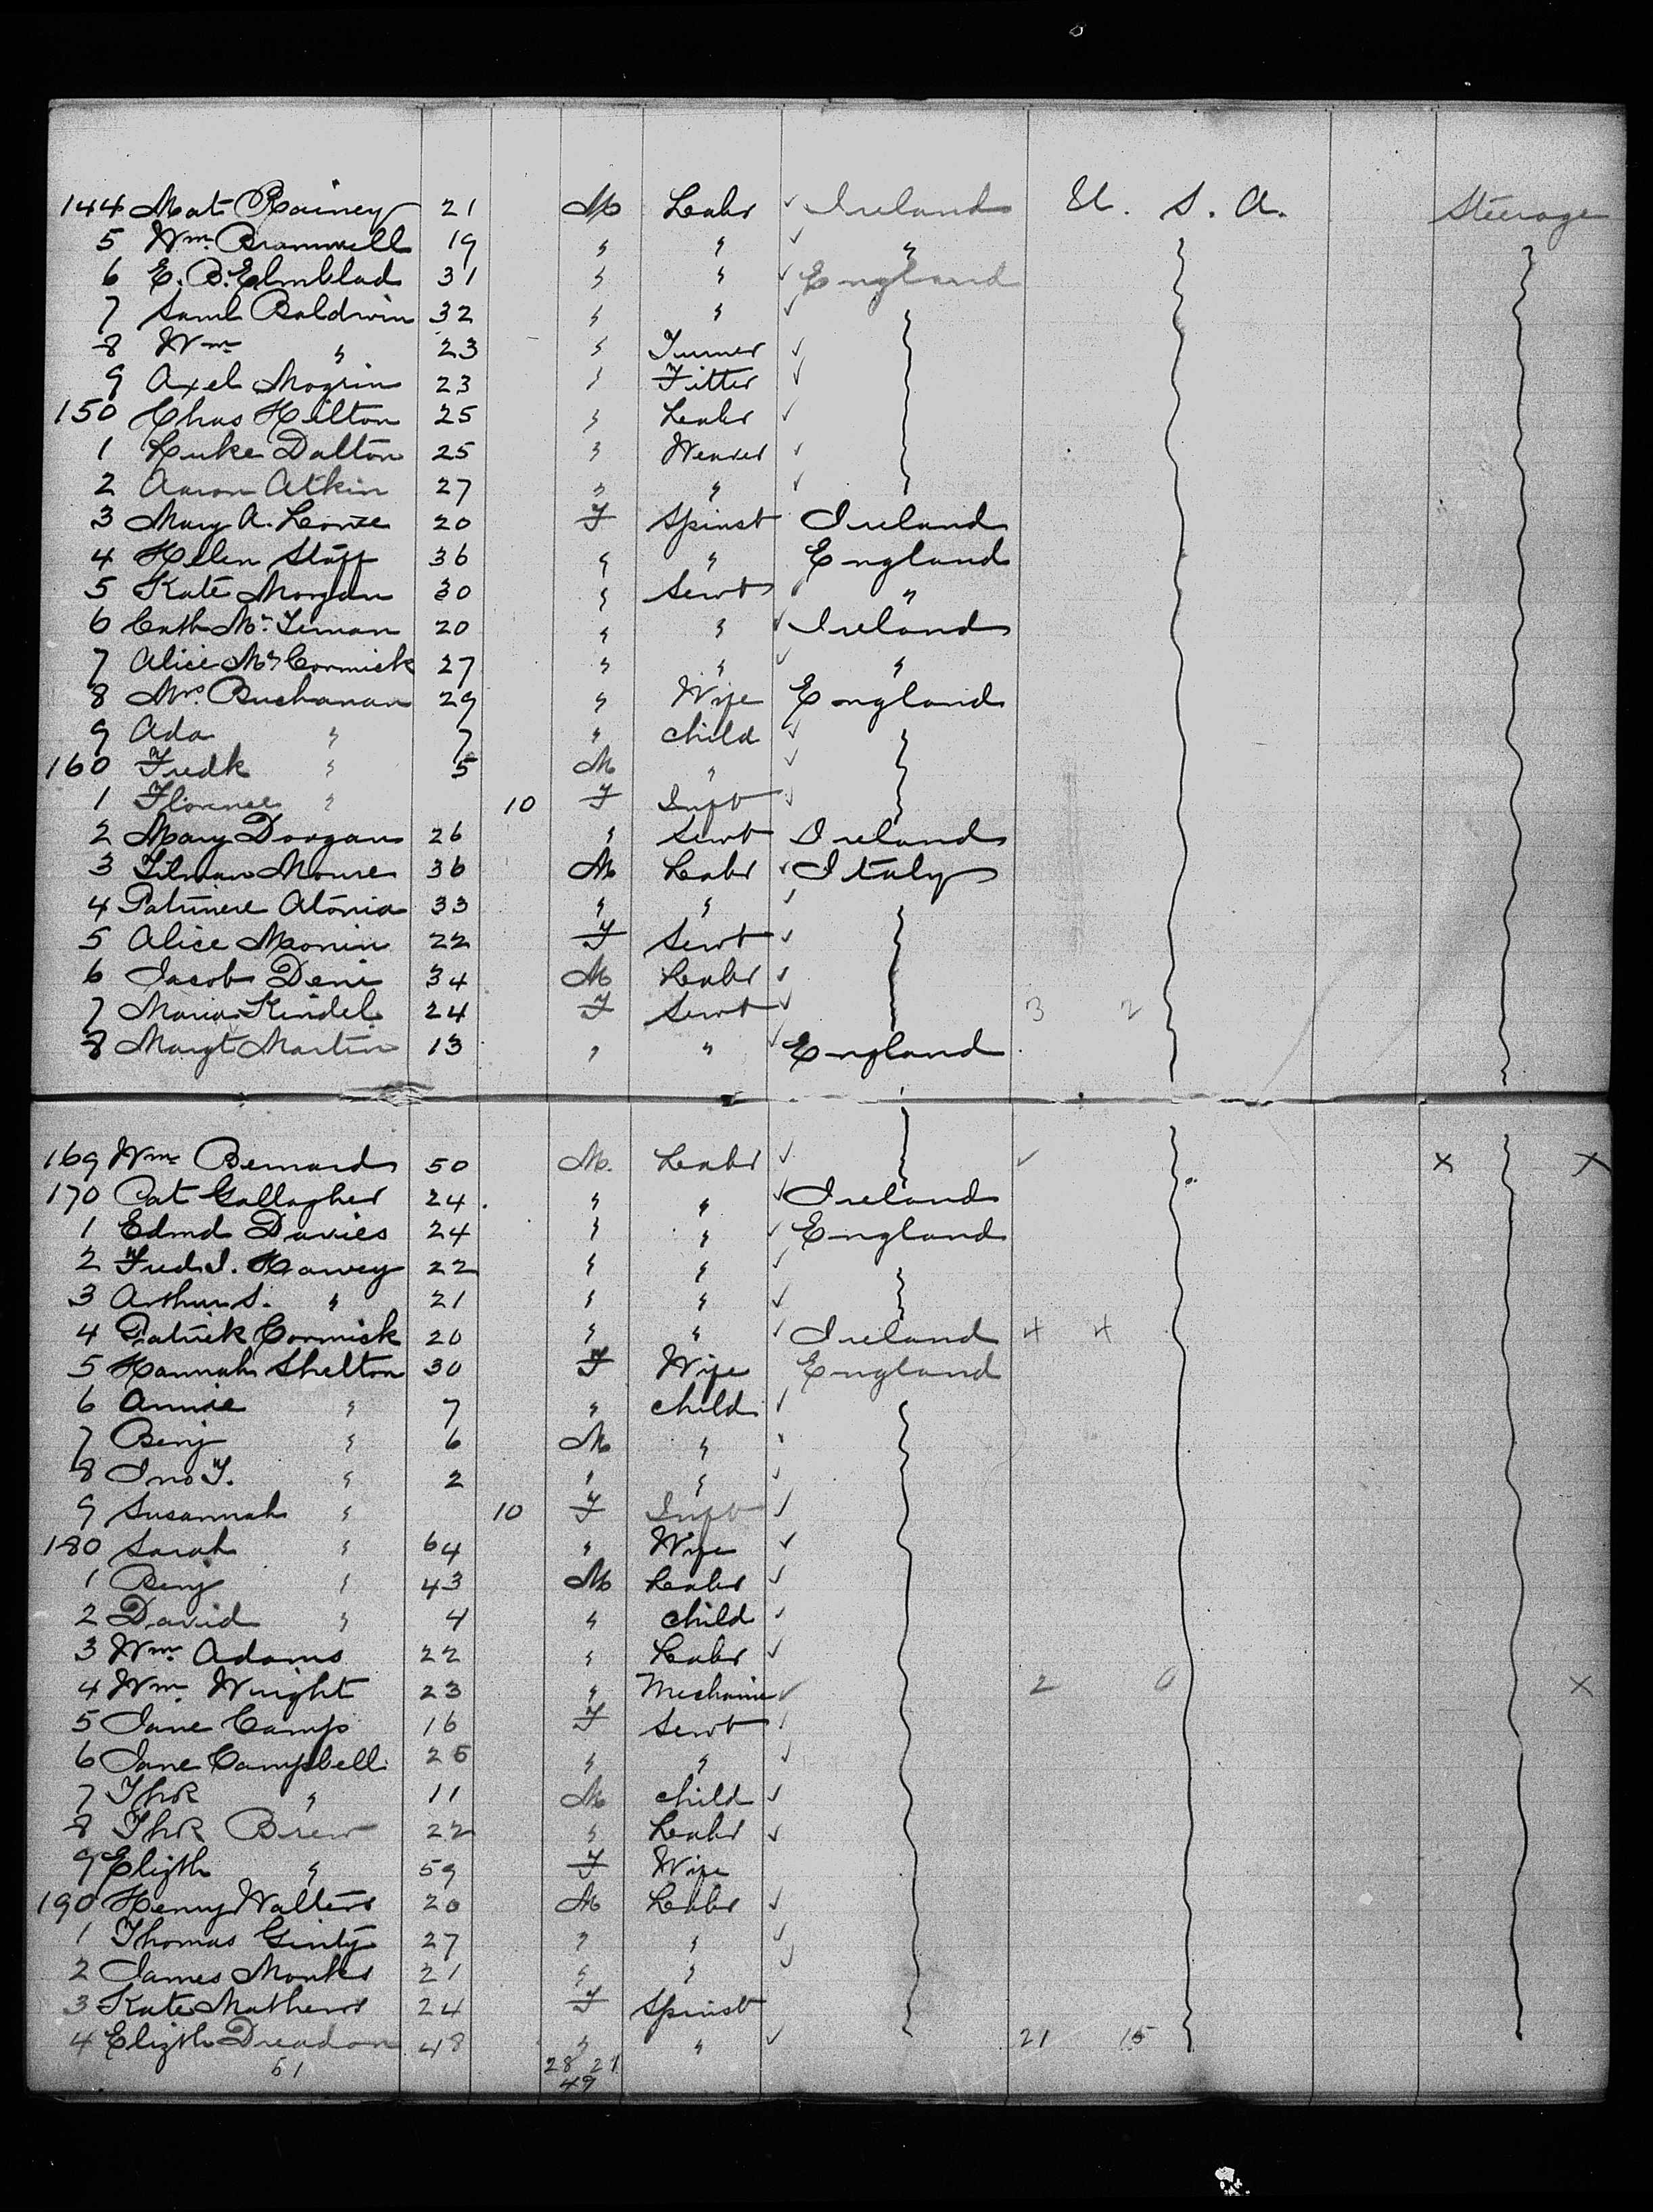 144 Mat Rainey 21 M Labr ✓ Ireland U. S. A. Steerage
5 Wm. Brammell 19 " " ✓ "
6 E. B. Elmblad 31 " " ✓ England
7 Saml Baldwin 32 " " ✓
8 Wm " 23 " Turner ✓
9 Axel Mogrin 23 " Fitter ✓
150 Chas Hilton 25 " Labr ✓
1 Luke Dalton 25 " Weaver ✓
2 Aaron Atkin 27 " " ✓
3 Mary A. 20 F Spinst Ireland
4 Helen Stapp 36 " " England
5 Kate Morgan 30 " Servt "
6 Cath Mc. Ternan 20 " " ✓ Ireland
7 Alice McCormick 27 " " ✓ "
8 Mrs. Buchanan 29 " Wife England
9 Ada " 7 " child ✓
160 Fredk " 5 M " ✓
1 Florence " 10 F Inft ✓
2 Mary Dorgan 26 " Servt Ireland
3 Moure 36 M Labr ✓ Italy
4 Atonia 33 " " ✓
5 Alice Monin 22 F Servt ✓
6 Jacob Deni 34 M Labr ✓
7 Maria Kindel 24 F Servt ✓ 3 2
8 Margt Martin 13 " " ✓ England
169 Wm. Bernard 50 M. Labr ✓ ✓ x x
170 Pat Gallagher 24 " " ✓ Ireland
1 Edmd Davies 24 " " ✓ England
2 Fred. J. Harvey 22 " " ✓
3 Arthur S. " 21 " " ✓
4 Patrick Cormick 20 " " ✓ Ireland 4 4
5 Hannah Shelton 30 F Wife England
6 Annie " 7 " child ✓
7 Benj " 6 M "
8 Jno T. " 2 " " ✓
9 Susannah " 10 F Inft ✓
180 Sarah " 64 " Wife ✓
1 Benj " 43 M Labr ✓
2 David " 4 " child ✓
3 Wm. Adams 22 " Labr ✓
4 Wm. Wright 23 " Mechanic ✓ 2 0 x
5 Jane Camp 16 F Servt
6 Jane Campbell 26 " " ✓
7 Thos " 11 M child ✓
8 Thos Brew 22 " Labr ✓
9 Elizth " 59 F Wife
190 Henry Walters 20 M Labr ✓
1 Thomas Ginty 27 " " ✓
2 James Monks 21 " " ✓
3 Kate Mathews 24 F Spinst
4 Elizth Dreadon 48 " " ✓ 21 15
51 28 21
49